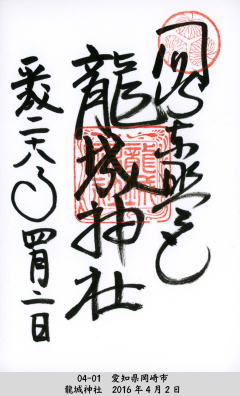 岡崎東照宮
龍城神社
平成二十八年四月二日
04-01 愛知県岡崎市
龍城神社 2016年4月2日